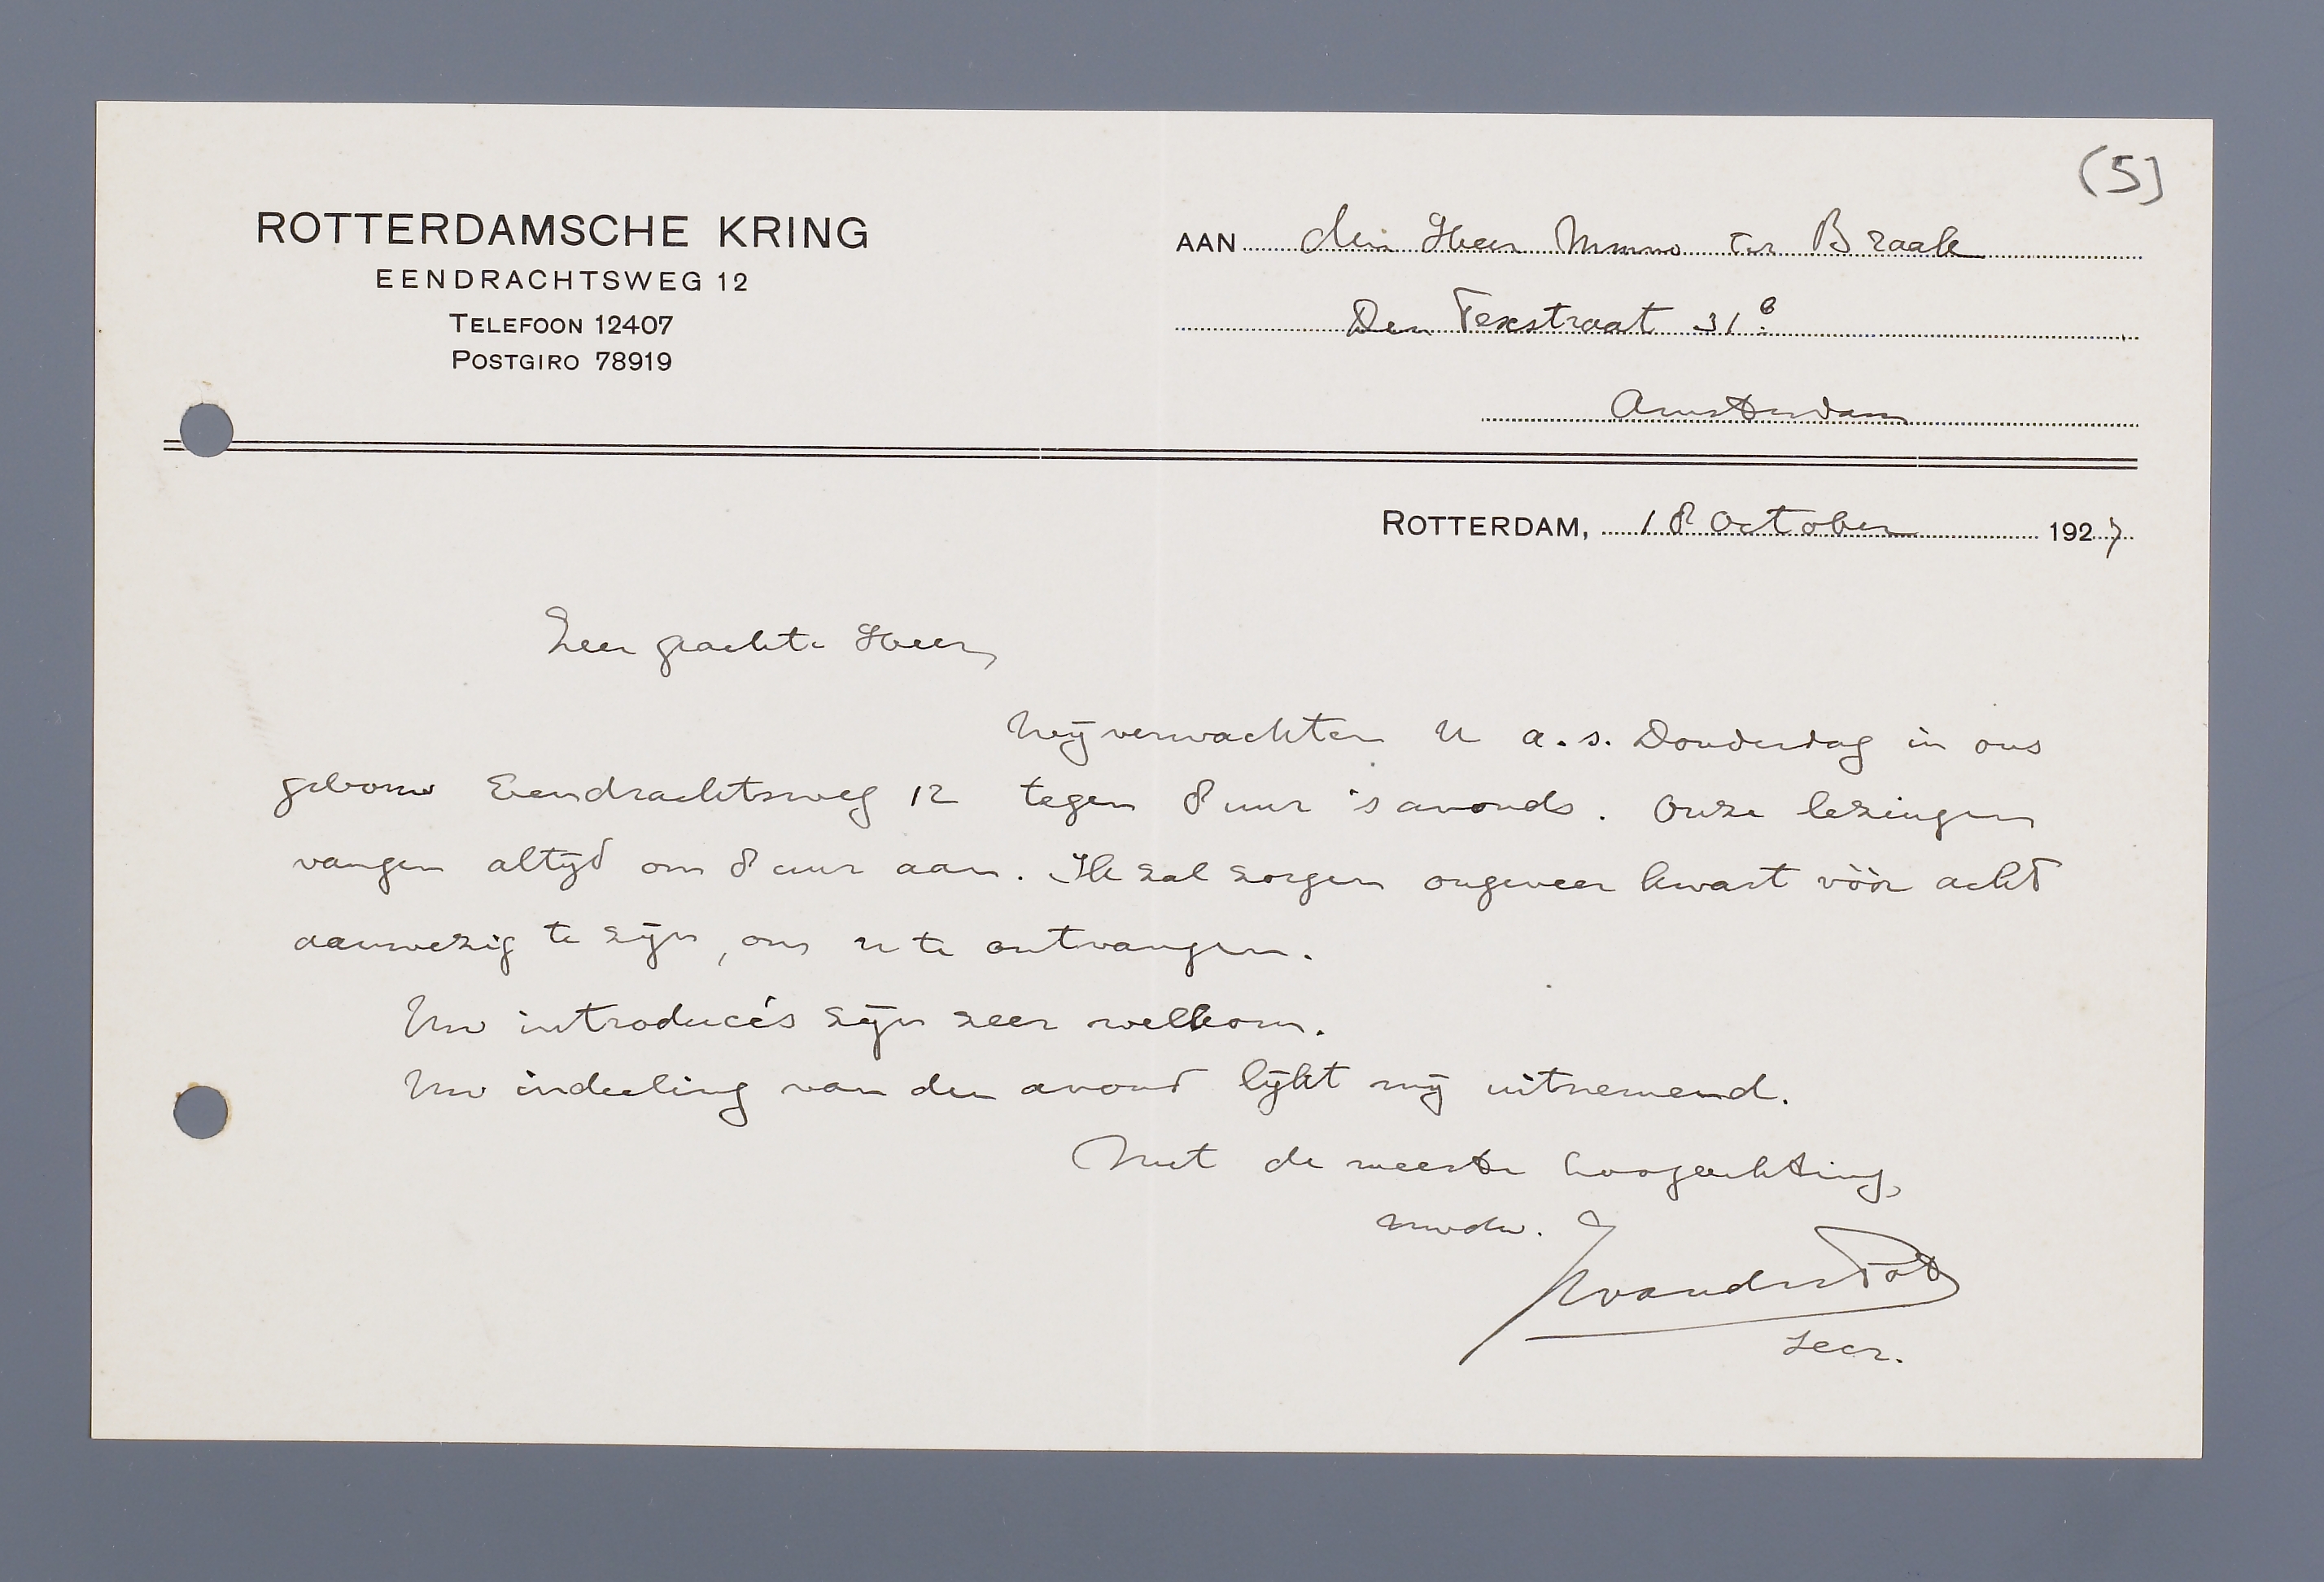 (5)
ROTTERDAMSCHE KRING
EENDRACHTSWEG 12
TELEFOON 12407
POSTGIRO 78919
AAN den Heer Menno ter Braak
Den Texstraat 31 b
Amsterdam
ROTTERDAM, 18 October 1927
Zeer geachte Heer,
Wij verwachten U a.s. Donderdag in ons
gebouw Eendrachtsweg 12 tegen 8 uur 's avonds. Onze lezingen
vangen altijd om 8 uur aan. Ik zal zorgen ongeveer kwart vòòr acht
aanwezig te zijn, om u te ontvangen.
Uw introducés zijn zeer welkom.
Uw indeeling van den avond lijkt mij uitnemend.
Met de meeste hoogachting,
uwdw. J E van der Pot
secr.